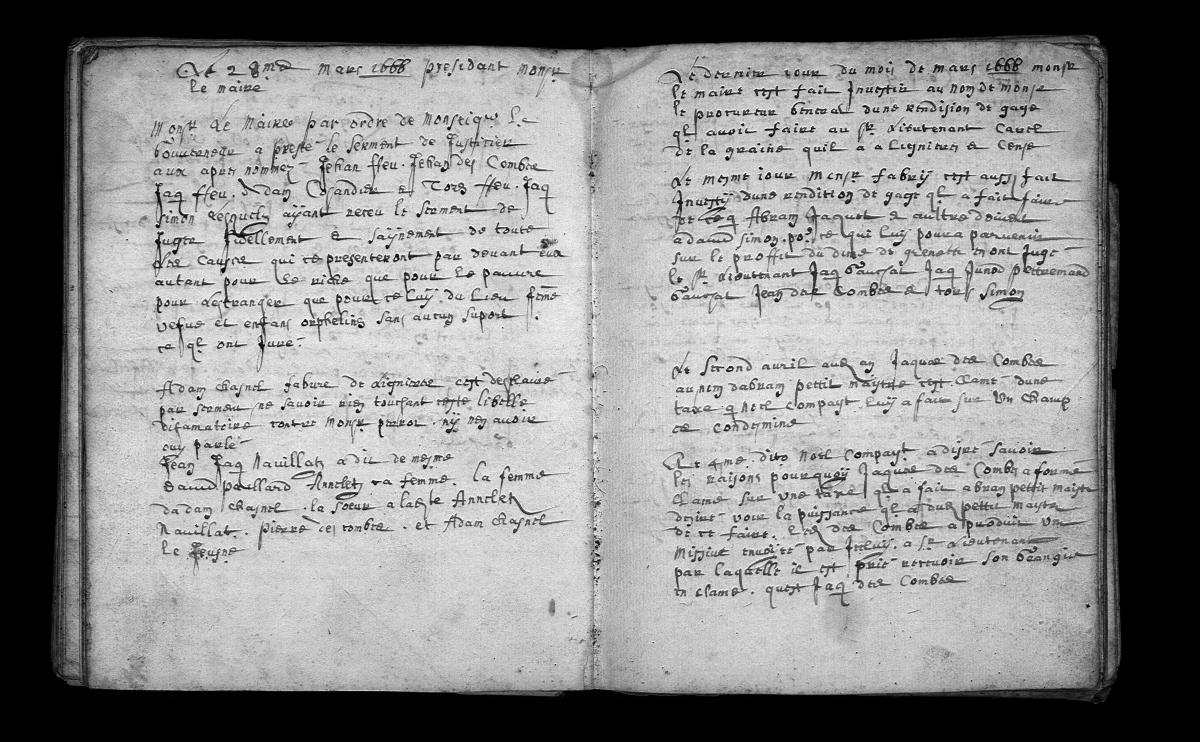 Le 28me mars 1668 presidant monsr
le maire
Monsr Le Maire par ordre de monseigr Le
Gouverneur a presté le serment de Justicier
aux apres nommez Jehan ffeu. Jehan des Combes
Jaq ffeu. Adam Chandier & Tors ffeu. Jaq
Simon lesquelz aÿant receu le serment de
Juger fidellement & sainement de toute
Causse qui ce presenteront par devant eux
autant pour le riche que pour le pauvre
pour Lestranger que pour celuÿ du Lieu feme
vefve et enfans orphelins sans aucun suport
ce ql ont Juré
Adam Chasnel fabure de Lignieres cest desclairé
par serment ne savoir rien touchant ceste libelle
difamatoire contre Monsr perrot. nÿ nen avoir
ouy parlé
Jean Jaq Navillat a dit de mesme
David paillard Annelet sa femme. la femme
dadam Chasnel. la soeur a ladte Annelet
Navillat. pierre des combes. et Adam Chasnel
Le Jeusne
Le dernier iour du mois de mars 1668 monsr
le maire cest fait Investir au nom de monsr
le procureur General dune rendision de gage
ql avoit faire au Sr Lieutenant
de la graine quil a a Lignieres & Cense
Le mesme iour monsr fabry cest aussj fait
Investÿ dune rendition de gage ql a fait faire
Abram Jaquet & aultre doivent
a david simon. po. ce qui luÿ poura parvenir
sur le proffit du dime de grenette en ont Jugé
le Sr Lieutenant Jaq Gaussat Jaq Juno pettremand
Gaussat Jean des Combes & tors simon
Le second avril Jaques des Combes
au nom dabram pettit maistre cest Clamé dune
taxe q Noel Compaÿt luÿ a fait sur un champ
ce condemine
Le 4me. dito Noel Compaÿt a dsiré savoir
les raisons pourquoÿ Jaques des Combes a formé
Clame sur une taxe ql a fait abram pettit maistre
desire voir la puissance ql a du pettit maistre
de ce faire. Led des Combes a produit un
missive envoiée par Jceluÿ. a Sr Lieutenant
par laquelle il est prié recevoir son
en clame. quest Jaq des Combes